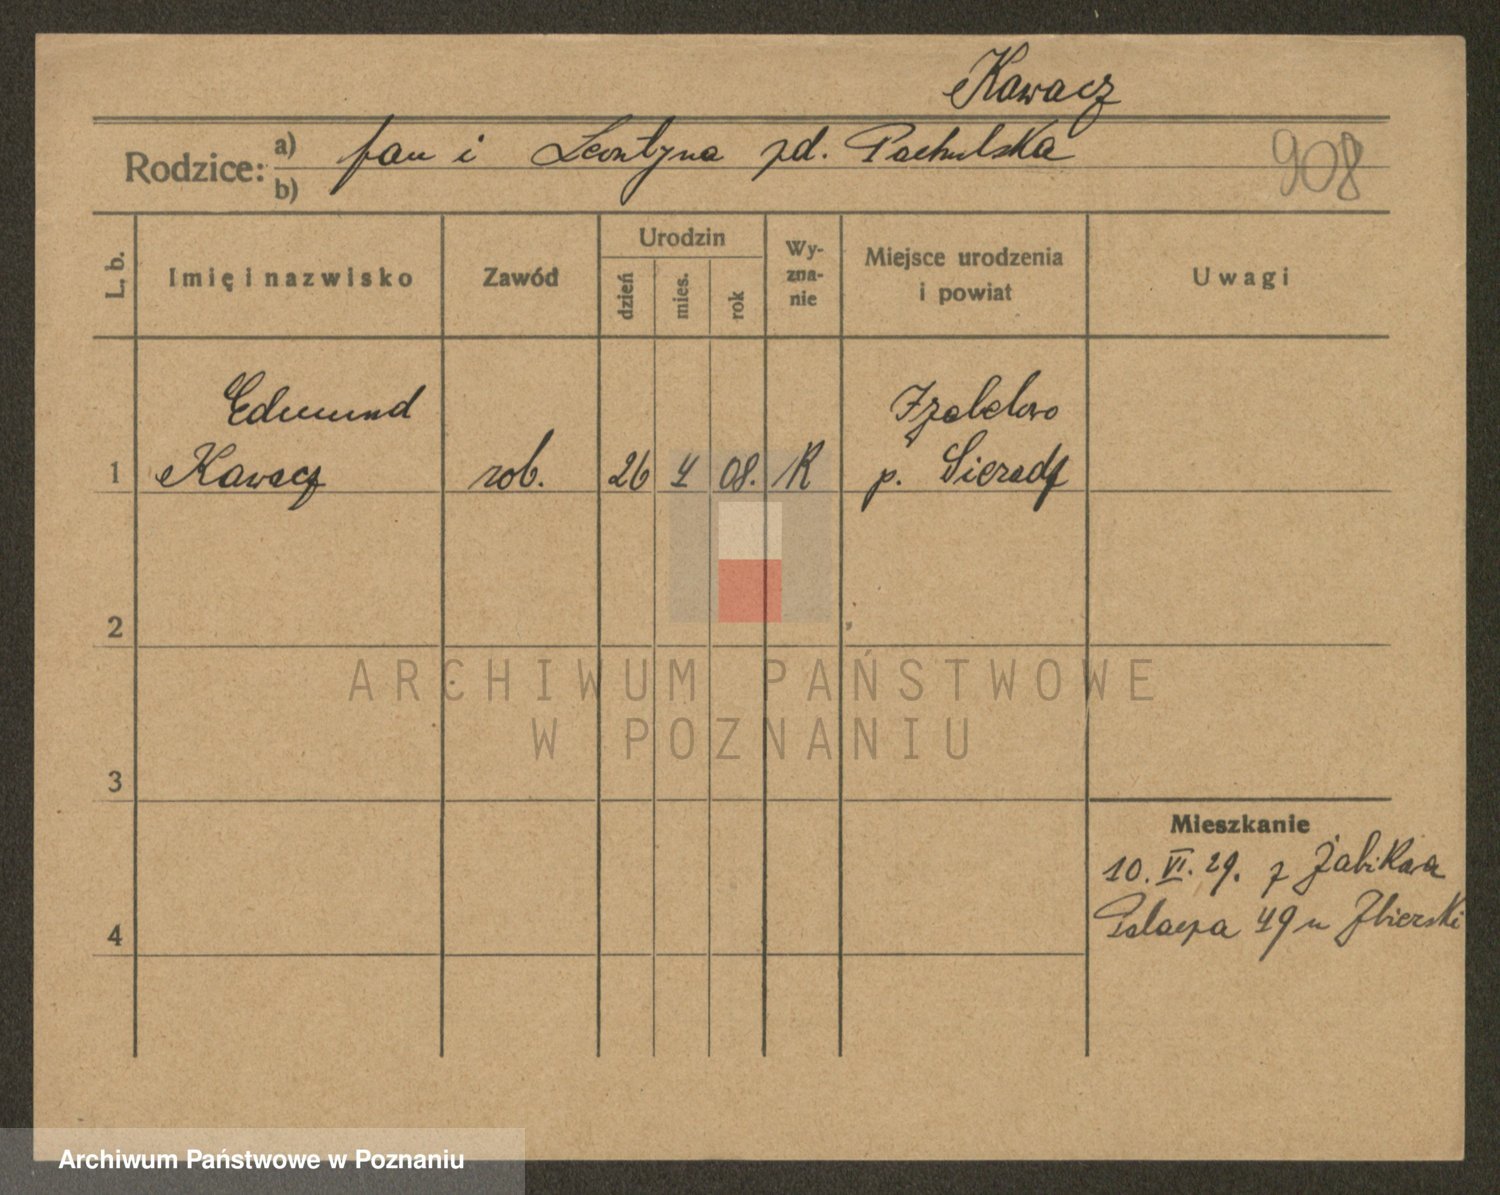 Kawacz
Rodzice: a) Jan i Leontyna zd. Pachulska
b)
908
L. b.
Imię i nazwisko
Zawód
Urodzin
dzień
mies.
rok
Wy-
zna-
nie
Miejsce urodzenia
i powiat
Uwagi
Edmund Izabelowo
1 Kawacz rob. 26 4 08. R p. Sieradz
2
3
4
Mieszkanie
10. VI. 29. z Żabikowa
49 u Zbierski
ARCHIWUM PAŃSTWOWE
W POZNANIU
Archiwum Państwowe w Poznaniu